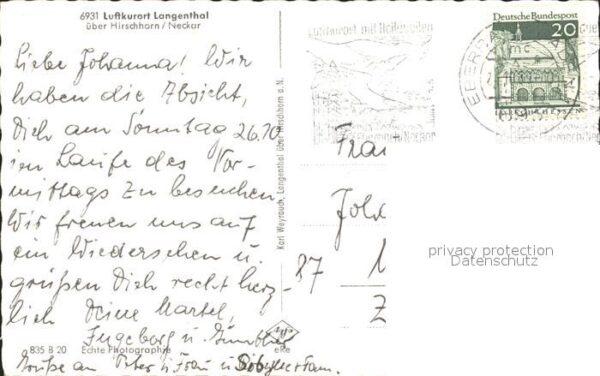 6931 Luftkurort Langenthal
über Hirschhorn / Neckar
Liebe Johanna! Wir
haben die Absicht,
Dich am Sonntag 26.10
im Laufe des Vor-
mittags zu besuchen.
Wir freuen uns auf
ein Wiedersehen u.
grüßen Dich recht herz-
lich Deine
Ingeborg u. Günther
Grüße an Peter u. Frau u.
835 B 20 Echte Photographie
Karl Weyrauch, Langenthal über Hirschhorn a. N.
eRe
Deutsche Bundespost
20
Luftkurort mit Heilquellen
EBERB
Frau
Joh
87
privacy protection
Datenschutz